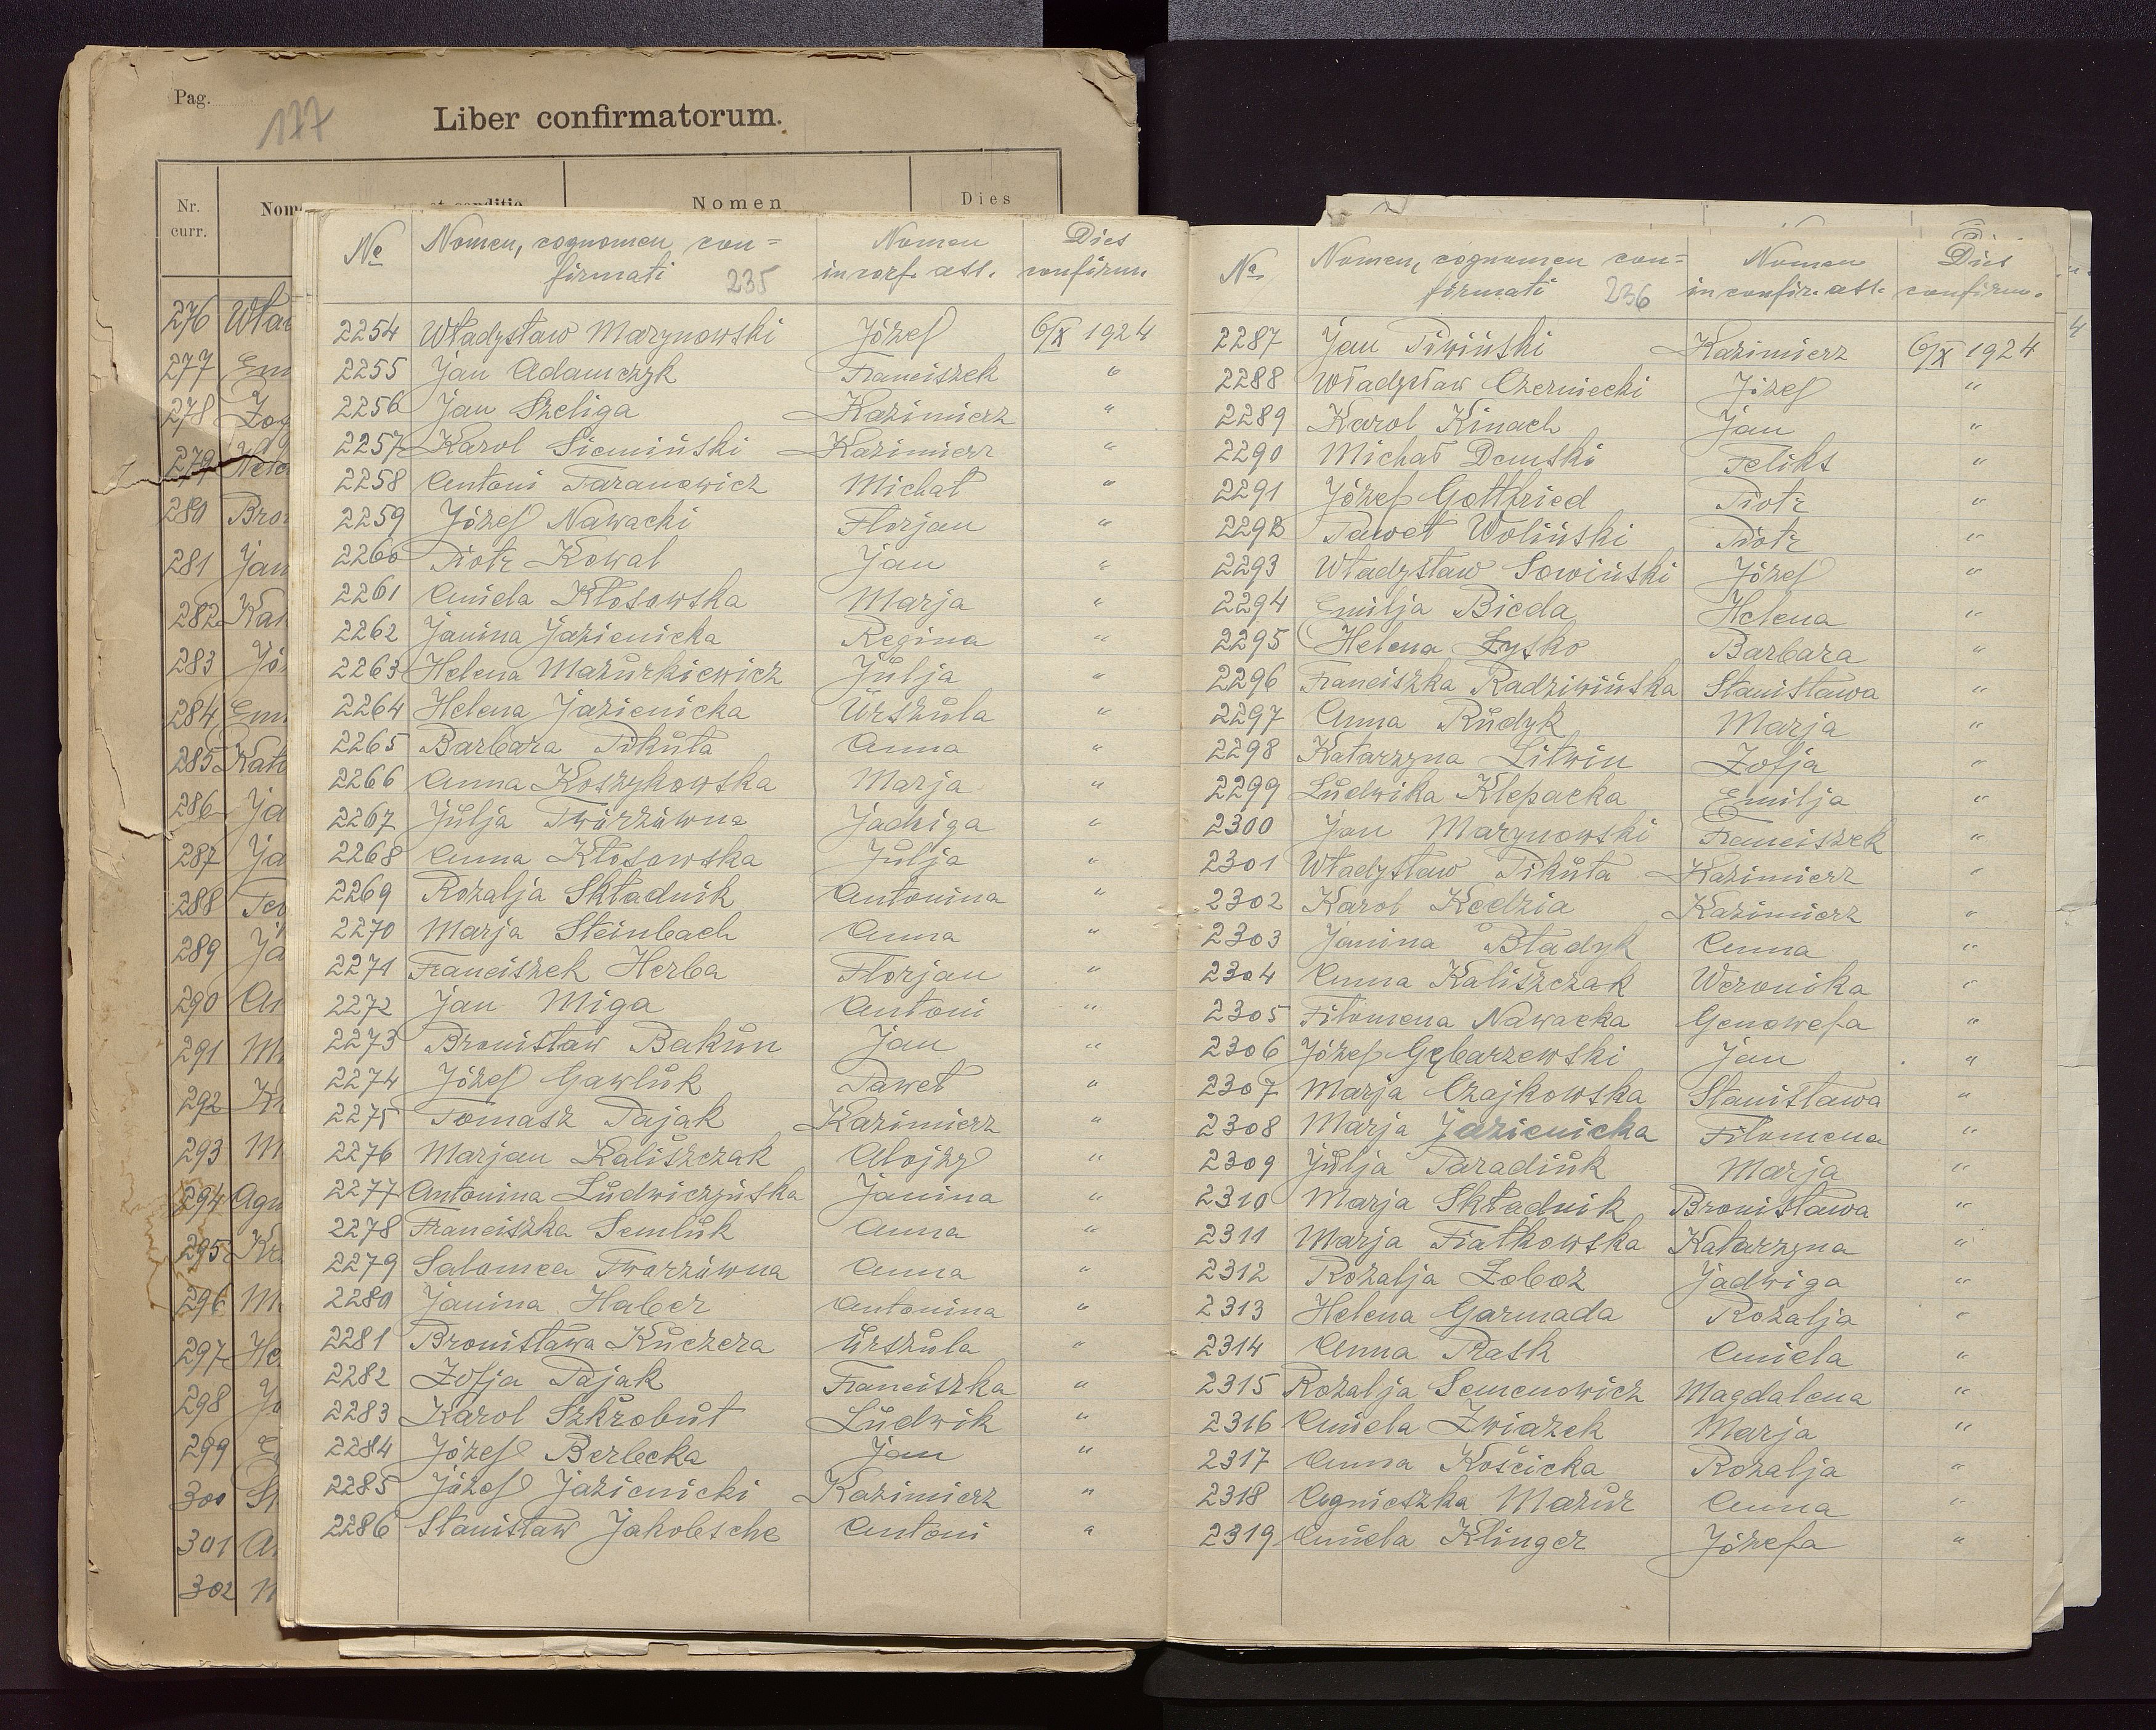 Pag.
177
Liber confirmatorum.
Nr. curr.
Nomen
Dies
276
277
278
279
280
281
282
283
284
285
286
287
288
289
290
291
292
293
294
295
296
297
298
299
300
301
302
№ Nomen, cognomen con= Nomen Dies
firmati 235 in conf. ass. confirm.
2254 Władysław Marynowski Józef 6/IX 1924
2255 Jan Adamczyk Franciszek "
2256 Jan Szeliga Kazimierz "
2257 Karol Siemiński Kazimierz "
2258 Antoni Taranowicz Michał "
2259 Józef Nawacki Florjan "
2260 Piotr Kowal Jan "
2261 Aniela Kłosowska Marja "
2262 Janina Jazienicka Regina "
2263 Helena Mazurkiewicz Julja "
2264 Helena Jazienicka Urszula "
2265 Barbara Pikuła Anna "
2266 Anna Koszykowska Marja "
2267 Julja Twarzówna Jadwiga "
2268 Anna Kłosowska Julja "
2269 Rozalja Składnik Antonina "
2270 Marja Steinbach Anna "
2271 Franciszek Herba Florjan "
2272 Jan Miga Antoni "
2273 Bronisław Bakun Jan "
2274 Józef Gawluk Paweł "
2275 Tomasz Pająk Kazimierz "
2276 Marjan Kaliszczak Alojzy "
2277 Antonina Ludwiczyńska Janina "
2278 Franciszka Semluk Anna "
2279 Salomea Twarzówna Anna "
2280 Janina Haber Antonina "
2281 Bronisława Kuczera Urszula "
2282 Zofja Pająk Franciszka "
2283 Karol Szkrobut Ludwik "
2284 Józef Berbecka Jan "
2285 Józef Jazienicki Kazimierz "
2286 Stanisław Jakobsche Antoni "
№ Nomen, cognomen con= Nomen Dies
firmati 236 in confir. ass. confirm.
2287 Jan Piwiński Kazimierz 6/IX 1924
2288 Władysław Czerniecki Józef "
2289 Karol Kinach Jan "
2290 Michał Demski Feliks "
2291 Józef Gottfried Piotr "
2292 Paweł Woliński Piotr "
2293 Władysław Sowiński Józef "
2294 Emilja Bieda Helena "
2295 Helena Łysko Barbara "
2296 Franciszka Radziwińska Stanisława "
2297 Anna Rudyk Marja "
2298 Katarzyna Litwin Zofja "
2299 Ludwika Klepacka Emilja "
2300 Jan Marynowski Franciszek "
2301 Władysław Pikuła Kazimierz "
2302 Karol Kedzia Kazimierz "
2303 Janina Bładyk Anna "
2304 Anna Kaliszczak Weronika "
2305 Filomena Nawacka Genowefa "
2306 Józef Gębarzewski Jan "
2307 Marja Czajkowska Stanisława "
2308 Marja Jazienicka Filomena "
2309 Julja Paradiuk Marja "
2310 Marja Składnik Bronisława "
2311 Marja Fiałkowska Katarzyna "
2312 Rozalja Łoboz Jadwiga "
2313 Helena Garmada Rozalja "
2314 Anna Rask Aniela "
2315 Rozalja Semenowicz Magdalena "
2316 Aniela Zwiazek Marja "
2317 Anna Kościcka Rozalja "
2318 Agnieszka Mazur Anna "
2319 Aniela Klinger Józefa "